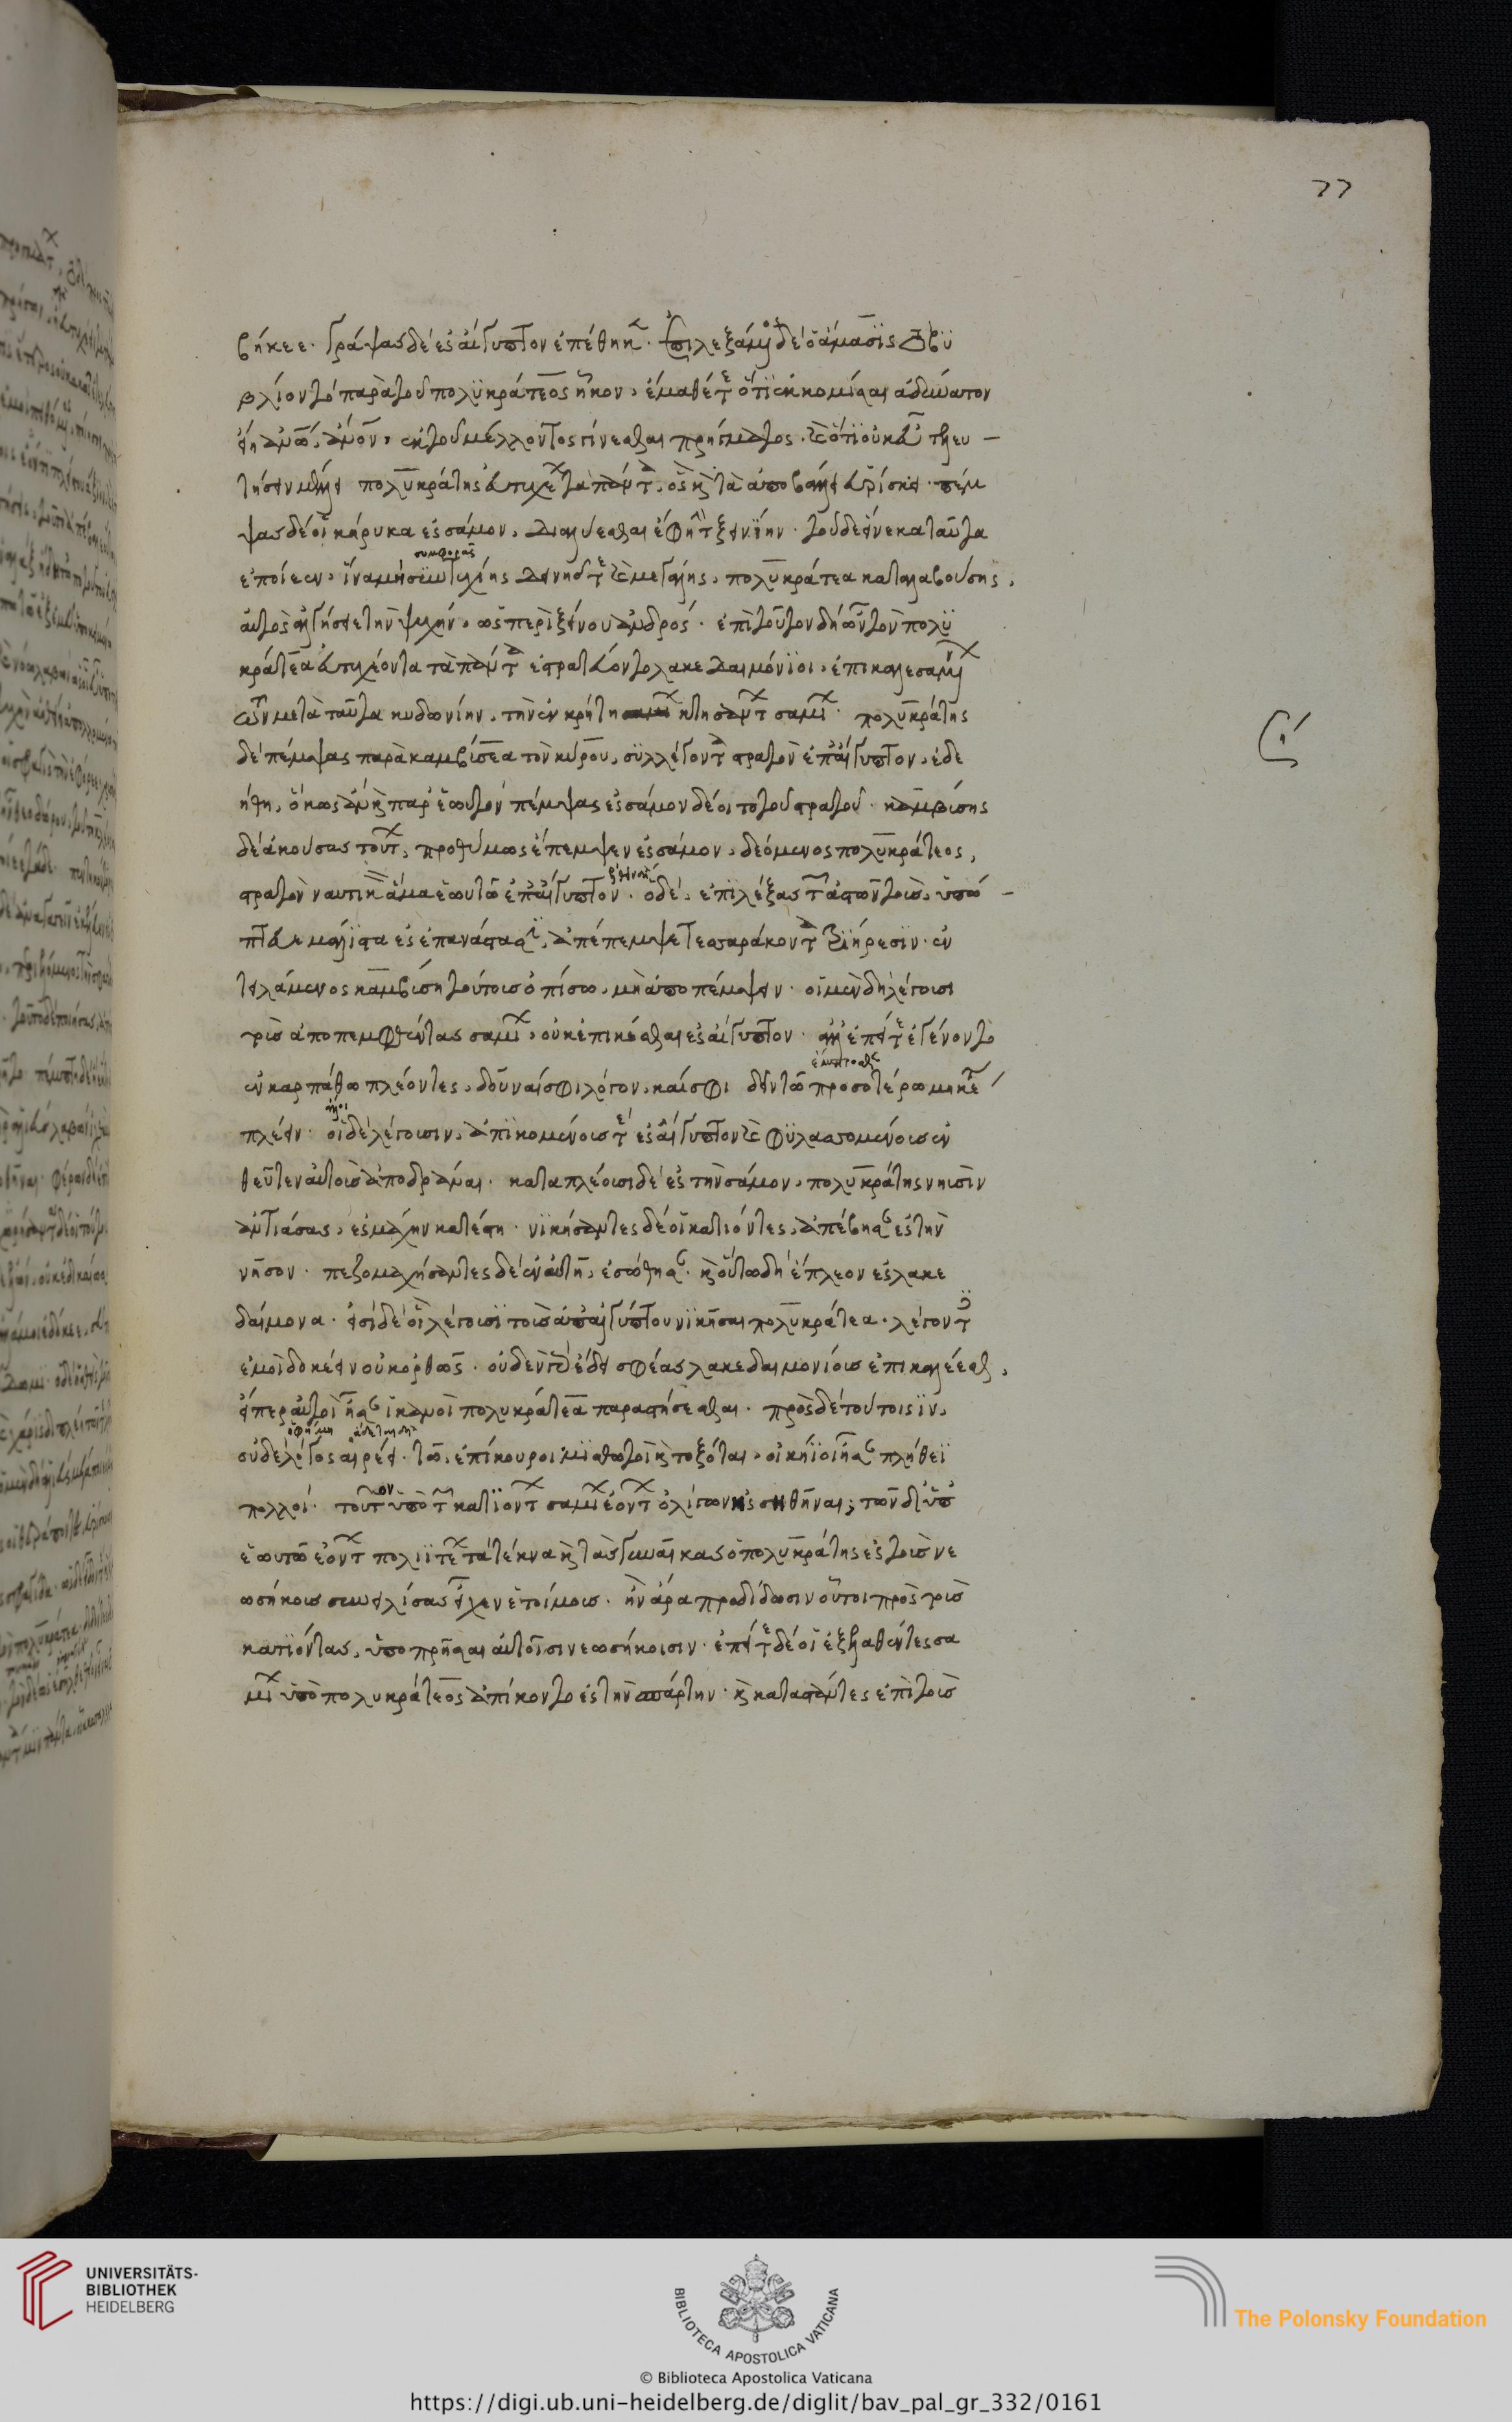 77
βήκεε. γράψας δὲ ἐς αἴγυπτον ἐπέθηκε. ἐπιλεξάμενος δὲ ὁ ἄμασις τὸ βυ
βλίον τὸ παρὰ τοῦ πολυκράτεος ἧκον, ἔμαθέ τε ὅτι ἐκκομίσαι ἀδύνατον
εἴη ἀνθρώπῳ ἄνθρωπον, ἐκ τοῦ μέλλοντος γίνεσθαι πρήγματος. καὶ ὅτι οὐκ εὖ τελευ –
τήσειν μέλλει πολυκράτης εὐτυχέων τὰ πάντα, ὃς καὶ τὰ ἀποβάλλει εὑρίσκει. πέμ
ψας δέ οἱ κήρυκα ἐς σάμον, διαλύεσθαι ἔφη τὴν ξεινίην. τοῦδε εἵνεκα ταῦτα
συμφορῆς
ἐποίεεν, ἵνα μὴ συντυχίης δεινῆς τε καὶ μεγάλης, πολυκράτεα καταλαβούσης,
αὐτὸς ἀλγήσειε τὴν ψυχήν, ὡς περὶ ξείνου ἀνδρός. ἐπὶ τοῦτον δὴ ὦν τὸν πολυ
κράτεα εὐτυχέοντα τὰ πάντα ἐστρατεύοντο λακεδαιμόνιοι, ἐπικαλεσαμένων
τῶν μετὰ ταῦτα κυδωνίην, τὴν ἐν κρήτῃ κτησάντων σαμίων. πολυκράτης
δὲ πέμψας παρὰ καμβύσεα τὸν κύρου, συλλέγοντα στρατὸν ἐπ' αἴγυπτον, ἐδε
ήθη, ὅκως ἂν καὶ παρ' ἑωυτὸν πέμψας ἐς σάμον δέοιτο τοῦ στρατοῦ. καμβύσης
δὲ ἀκούσας τούτων, προθύμως ἔπεμψεν ἐς σάμον, δεόμενος πολυκράτεος,
στρατὸν ναυτικὸν ἅμα ἑωυτῷ ἐπ' αἴγυπτον. ὁ δὲ, ἐπιλέξας τῶν ἀστῶν τοὺς, ὑπώ –
πτευε μάλιστα ἐς ἐπανάστασιν, ἀπέπεμψε τεσσαράκοντα τριήρεσιν. ἐν
τειλάμενος καμβύσῃ τούτους ὀπίσω, μὴ ἀποπέμπειν. οἱ μὲν δὴ λέγουσι
τοὺς ἀποπεμφθέντας σαμίων, οὐκ ἀπικέσθαι ἐς αἴγυπτον. ἀλλ' ἐπεί τε ἐγένοντο
ἐν καρπάθῳ πλέοντες, δοῦναί σφι λόγον, καί σφι ἁδεῖν τῷ προσωτέρω μηκέτι
ἄλλοι
πλέειν. οἱ δὲ λέγουσιν, ἀπικομένους τε ἐς αἴγυπτον καὶ φυλασσομένους ἐν
θεῦτεν αὐτοὺς ἀποδράναι. καταπλέουσι δὲ ἐς τὴν σάμον, πολυκράτης νηυσὶν
ἀντιάσας, ἐς μάχην κατέστη. νικήσαντες δὲ οἱ κατιόντες, ἀπέβησαν ἐς τὴν
νῆσον. πεζομαχήσαντες δὲ ἐν αὐτῇ, ἑσσώθησαν. καὶ οὕτω δὴ ἔπλεον ἐς λακε
δαίμονα. εἰσὶ δὲ οἳ λέγουσι τοὺς ἀπ' αἰγύπτου νικῆσαι πολυκράτεα. λέγοντες
ἐμοὶ δοκέειν οὐκ ὀρθῶς. οὐδὲν γὰρ ἔδει σφέας λακεδαιμονίους ἐπικαλέεσθαι,
εἴπερ αὐτοὶ ἦσαν ἱκανοὶ πολυκράτεα παραστήσεσθαι. πρὸς δὲ τούτοισιν,
οὐδὲ λόγος αἱρέει. τῷ, ἐπίκουροι μισθωτοὶ καὶ τοξόται, οἰκήιοι ἦσαν πλήθει
πολλοί. τοῦτον ὑπὸ τῶν κατιόντων σαμίων ἐόντων ὀλίγων ἑσσωθῆναι; τῶν δ' ὑπ'
ἑωυτῷ ἐόντων πολιητέων τὰ τέκνα καὶ τὰς γυναῖκας ὁ πολυκράτης ἐς τοὺς νε
ωσοίκους συνειλίσας εἶχεν ἑτοίμους. ἢν ἄρα προδιδῶσιν οὗτοι πρὸς τοὺς
κατιόντας, ὑποπρῆσαι αὐτοῖσι νεωσοίκοισιν. ἐπεί τε δὲ οἱ ἐξελαθέντες σα
μίων ὑπὸ πολυκράτεος ἀπίκοντο ἐς τὴν σπάρτην. καὶ καταστάντες ἐπὶ τοὺς
UNIVERSITÄTS-
BIBLIOTHEK
HEIDELBERG
BIBLIOTECA APOSTOLICA VATICANA
The Polonsky Foundation
© Biblioteca Apostolica Vaticana
https://digi.ub.uni-heidelberg.de/diglit/bav_pal_gr_332/0161